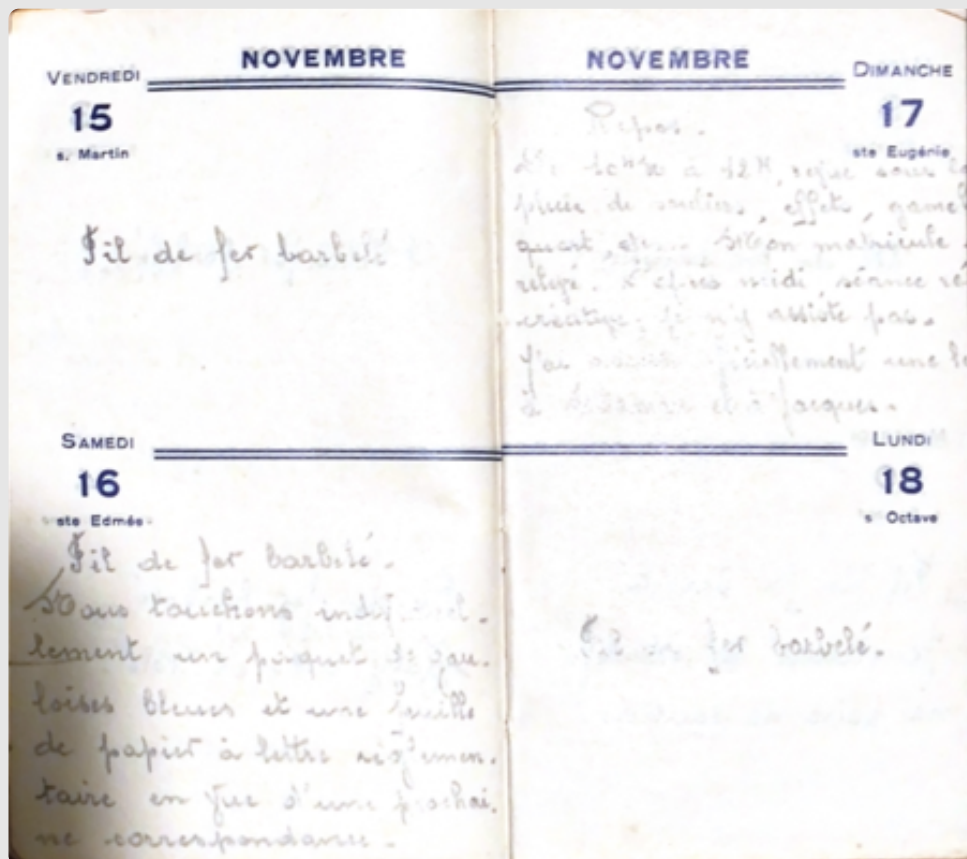 NOVEMBRE
VENDREDI
15
s. Martin
Fil de fer barbelé
SAMEDI
16
ste Edmée
Fil de fer barbelé.
Nous touchons
lement un paquet de gau-
loises bleues et une feuille
de papier à lettre régimen-
taire en vue d'une prochai-
ne correspondance.
NOVEMBRE
DIMANCHE
17
ste Eugénie
Repos.
à 12H, sous
pluie de effets,
quart, etc... Mon matricule
L'après midi, séance ré
créative. Je n'y assiste pas.
J'ai une
à et à Jacques.
LUNDI
18
s Octave
Fil fer barbelé.